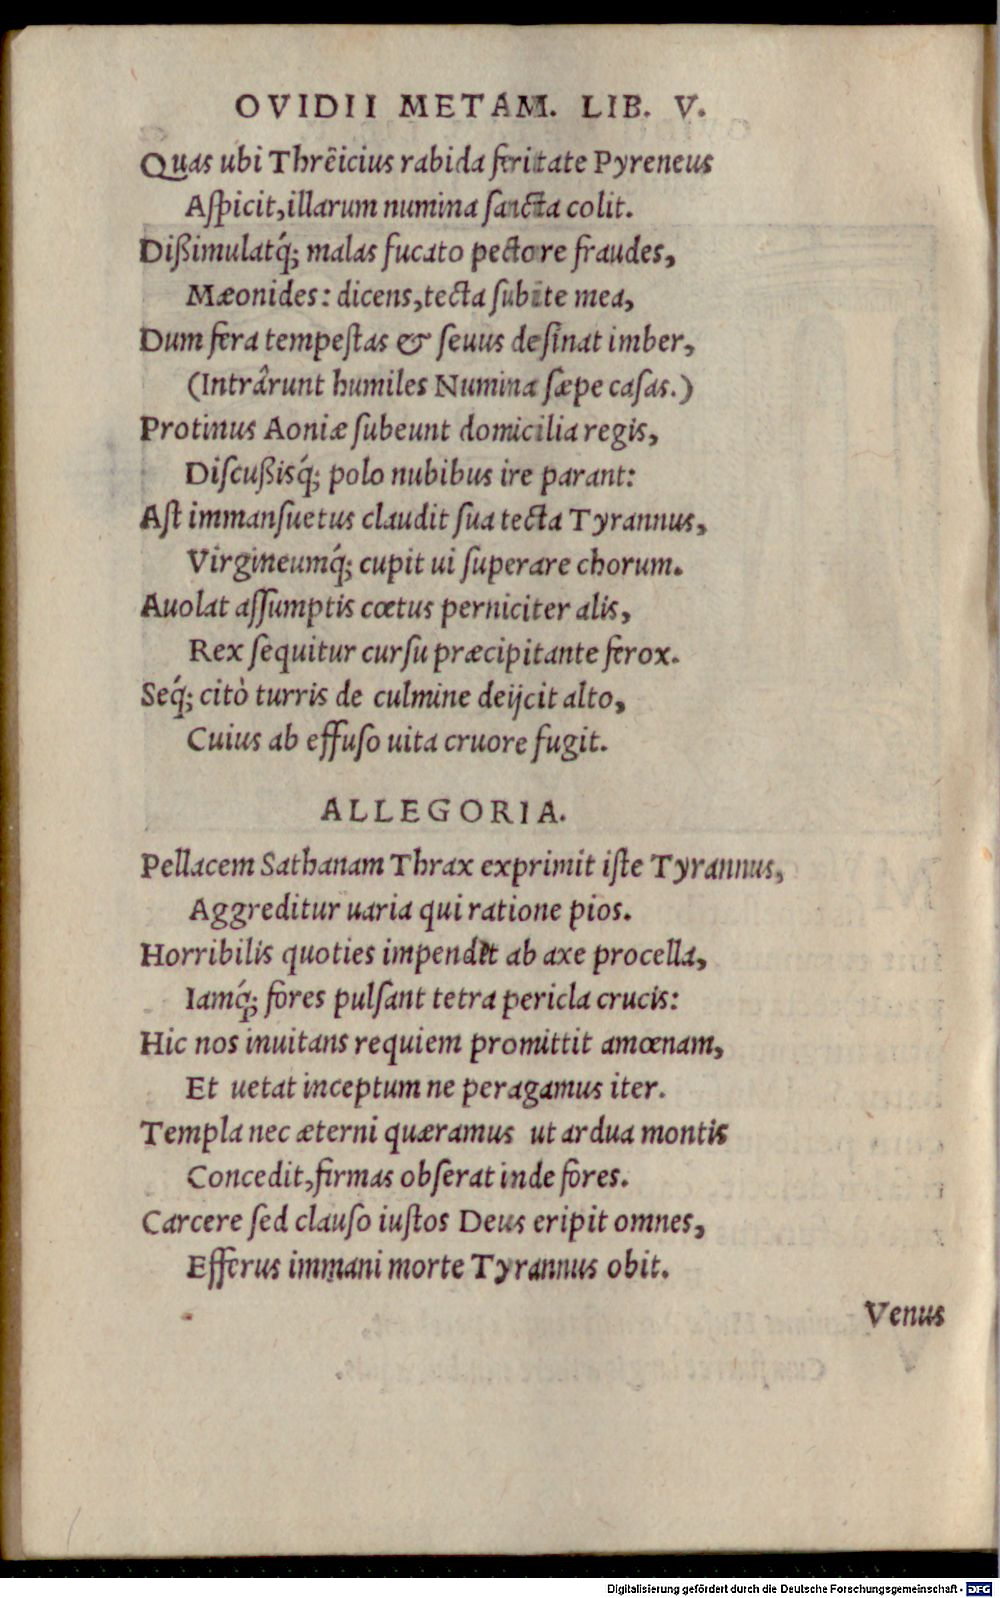 OVIDII METAM. LIB. V.
Quas ubi Thrêicius rabida feritate Pyreneus
Aſpicit, illarum numina ſancta colit.
Dißimulatq́; malas fucato pectore fraudes,
Mæonides: dicens, tecta ſubite mea,
Dum fera tempeſtas & ſeuus deſinat imber,
(Intrârunt humiles Numina ſæpe caſas.)
Protinus Aoniæ ſubeunt domicilia regis,
Diſcußisq́; polo nubibus ire parant:
Aſt immanſuetus claudit ſua tecta Tyrannus,
Virgineumq́; cupit ui ſuperare chorum.
Auolat aſſumptis cœtus perniciter alis,
Rex ſequitur curſu præcipitante ferox.
Seq́; citò turris de culmine deijcit alto,
Cuius ab effuſo uita cruore fugit.
ALLEGORIA.
Pellacem Sathanam Thrax exprimit iſte Tyrannus,
Aggreditur uaria qui ratione pios.
Horribilis quoties impendet ab axe procella,
Iamq́; fores pulſant tetra pericla crucis:
Hic nos inuitans requiem promittit amœnam,
Et uetat inceptum ne peragamus iter.
Templa nec æterni quæramus ut ardua montis
Concedit, firmas obſerat inde fores.
Carcere ſed clauſo iuſtos Deus eripit omnes,
Efferus immani morte Tyrannus obit.
Venus
Digitalisierung gefördert durch die Deutsche Forschungsgemeinschaft - DFG